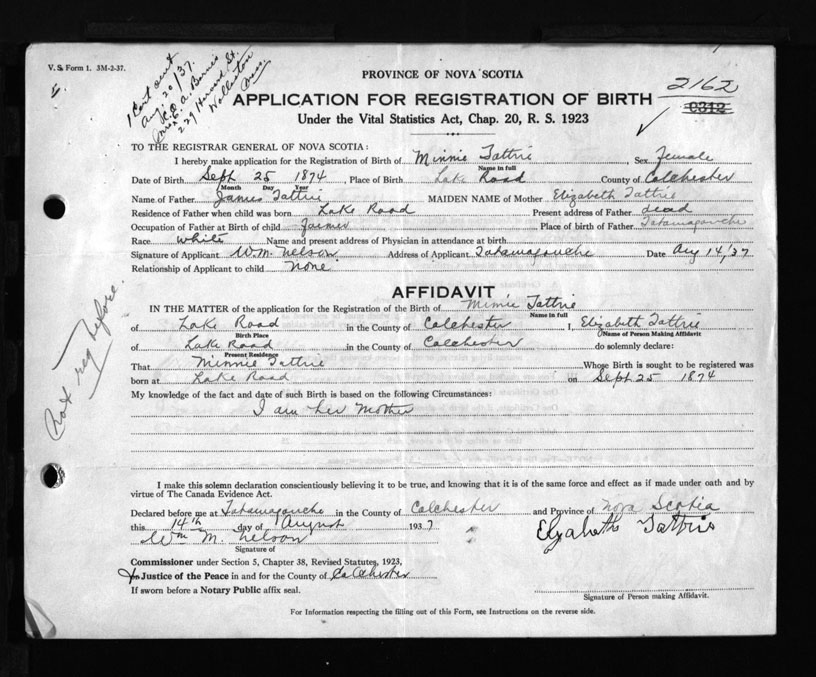 V. S. Form 1. 3M-2-37.
1 Cert sent
Aug 20/37.
229 St.
Wollaston
Mass.
PROVINCE OF NOVA SCOTIA
2162
0312
APPLICATION FOR REGISTRATION OF BIRTH
Under the Vital Statistics Act, Chap. 20, R. S. 1923
TO THE REGISTRAR GENERAL OF NOVA SCOTIA:
I hereby make application for the Registration of Birth of Minnie Tattrie, Sex Female
Name in full
Date of Birth Sept 25 1874, Place of Birth Lake Road County of Colchester
Month Day Year
Name of Father James Tattrie MAIDEN NAME of Mother Elizabeth Tattrie
Residence of Father when child was born Lake Road Present address of Father dead
Occupation of Father at Birth of child Farmer Place of birth of Father Tatamagouche
Race white Name and present address of Physician in attendance at birth
Signature of Applicant W.M. Nelson Address of Applicant Tatamagouche Date Aug 14/37
Relationship of Applicant to child None
Not reg before.
AFFIDAVIT
IN THE MATTER of the application for the Registration of the Birth of Minnie Tattrie
Name in full
of Lake Road in the County of Colchester I, Elizabeth Tattrie
Birth Place Name of Person Making Affidavit
of Lake Road in the County of Colchester do solemnly declare:
Present Residence
That Minnie Tattrie Whose Birth is sought to be registered was
born at Lake Road on Sept 25 1874
My knowledge of the fact and date of such Birth is based on the following Circumstances:
I am her Mother
I make this solemn declaration conscientiously believing it to be true, and knowing that it is of the same force and effect as if made under oath and by
virtue of The Canada Evidence Act.
Declared before me at Tatamagouche in the County of Colchester and Province of Nova Scotia
this 14th day of August 1937
Elizabeth Tattrie
Wm M. Nelson
Signature of
Commissioner under Section 5, Chapter 38, Revised Statutes, 1923,
or Justice of the Peace in and for the County of Colchester
If sworn before a Notary Public affix seal.
Signature of Person making Affidavit.
For Information respecting the filling out of this Form, see Instructions on the reverse side.